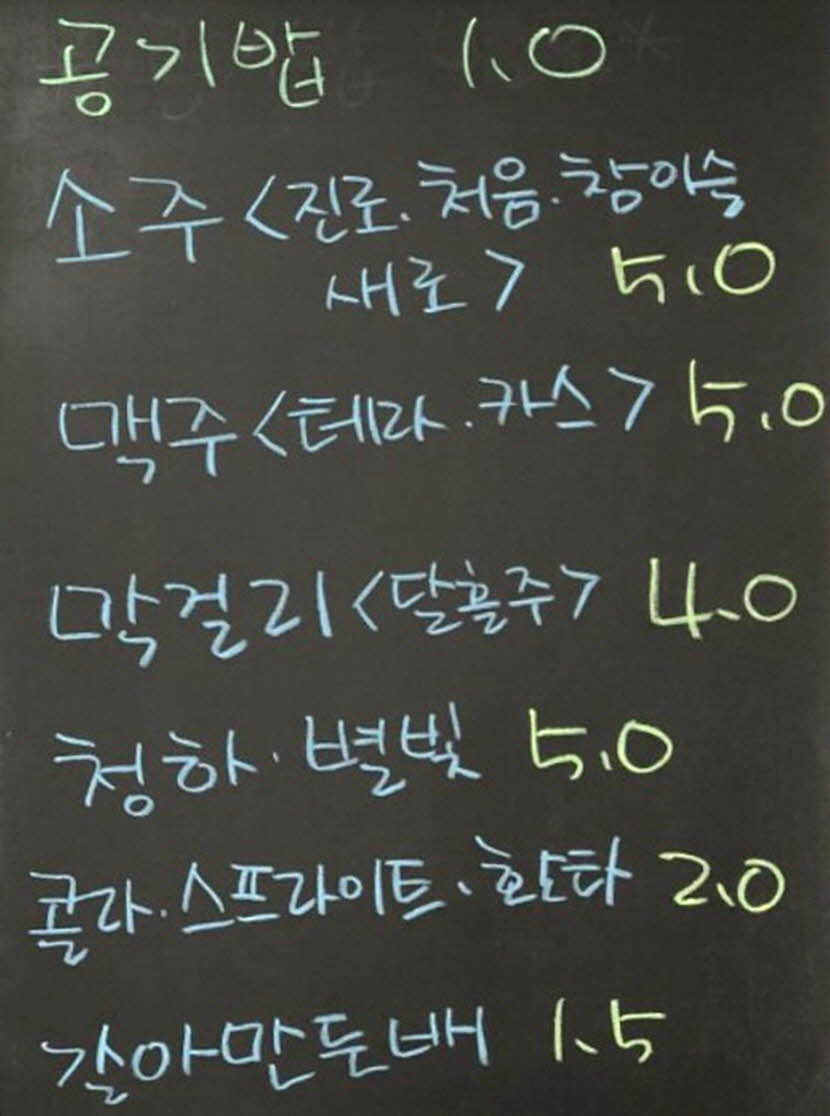 공기밥 1.0
소주<진로.처음.참이슬
새로> 5.0
맥주<테라.카스> 5.0
막걸리<달홀주> 4.0
청하.별빛 5.0
콜라.스프라이트.환타 2.0
갈아만든배 1.5